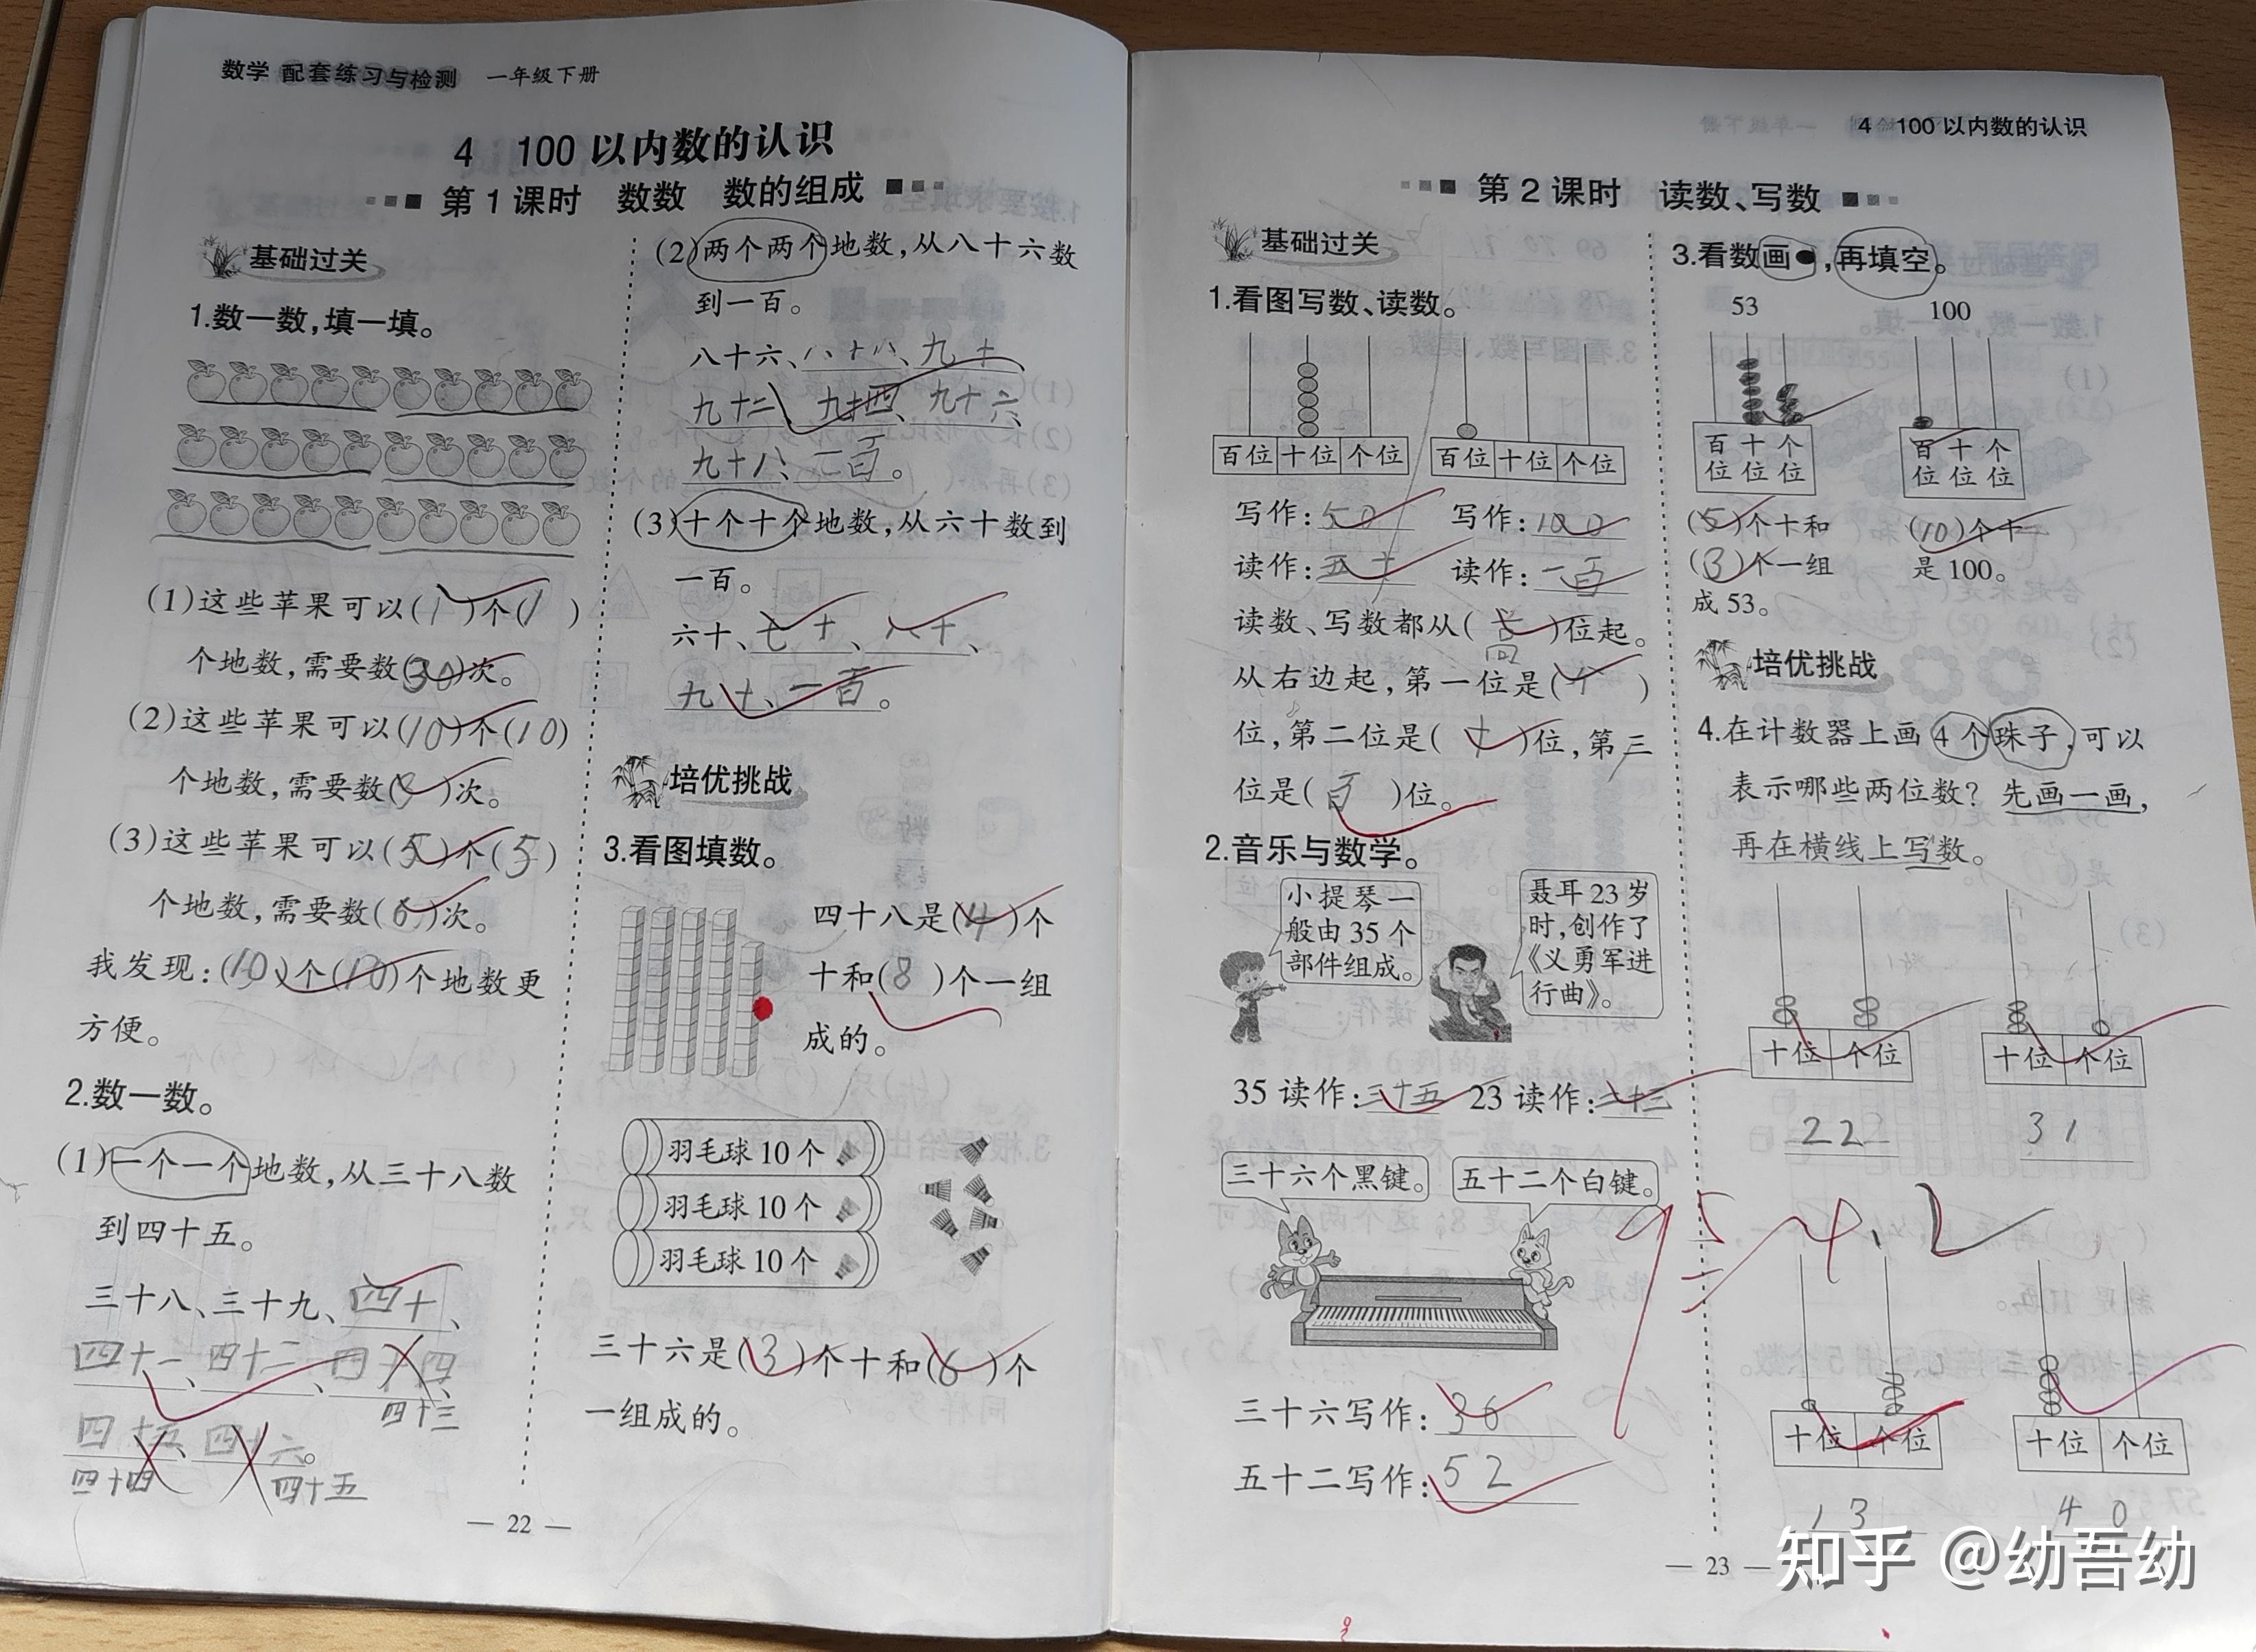 数学 配套练习与检测 一年级下册
4 100以内数的认识
第1课时 数数 数的组成
基础过关
1.数一数,填一填。
(1)这些苹果可以(1)个(1)
个地数,需要数(30)次。
(2)这些苹果可以(10)个(10)
个地数,需要数(3)次。
(3)这些苹果可以(5)个(5)
个地数,需要数(6)次。
我发现:(10)个(10)个地数更
方便。
2.数一数。
(1)一个一个地数,从三十八数
到四十五。
三十八、三十九、四十、
四十一、四十二、四十四、
四十三
四十五、四十六。
四十四 四十五
(2)两个两个地数,从八十六数
到一百。
八十六、八十八、九十、
九十二、九十四、九十六、
九十八、一百。
(3)十个十个地数,从六十数到
一百。
六十、七十、八十、
九十、一百。
培优挑战
3.看图填数。
四十八是(4)个
十和(8)个一组
成的。
羽毛球10个
羽毛球10个
羽毛球10个
三十六是(3)个十和(6)个
一组成的。
— 22 —
4 100以内数的认识
第2课时 读数、写数
基础过关
1.看图写数、读数。
百位 十位 个位 百位 十位 个位
写作:50 写作:100
读作:五十 读作:一百
读数、写数都从(高)位起。
从右边起,第一位是(个)
位,第二位是(十)位,第三
位是(百)位。
2.音乐与数学。
小提琴一
般由35个
部件组成。
聂耳23岁
时,创作了
《义勇军进
行曲》。
35读作:三十五 23读作:二十三
三十六个黑键。 五十二个白键。
三十六写作:36
五十二写作:52
3.看数画●,再填空。
53 100
百位 十位 个位 百位 十位 个位
(5)个十和 (10)个十
(3)个一组 是100。
成53。
培优挑战
4.在计数器上画4个珠子,可以
表示哪些两位数?先画一画,
再在横线上写数。
十位 个位 十位 个位
22 31
十位 个位 十位 个位
13 40
— 23 —
知乎 @幼吾幼